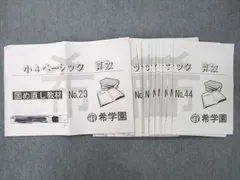 小4ベーシック 算数
固め直し教材 No.23
希学園
小4ベーシック 算数
No.44
希学園